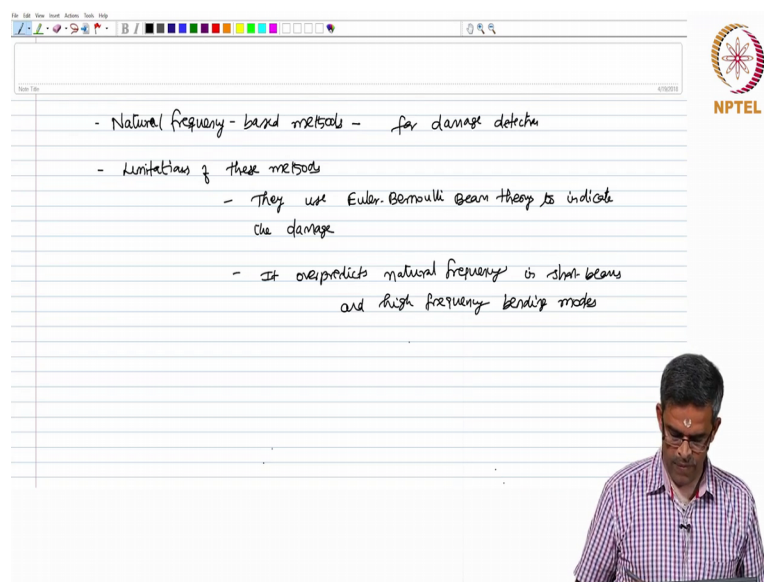 File Edit View Insert Actions Tools Help
B I
Note Title
4/19/2018
NPTEL
- Natural frequency-based methods - for damage detection
- Limitations of these methods
- They use Euler-Bernoulli Beam theory to indicate
the damage
- It overpredicts natural frequency in short-beams
and high frequency bending modes